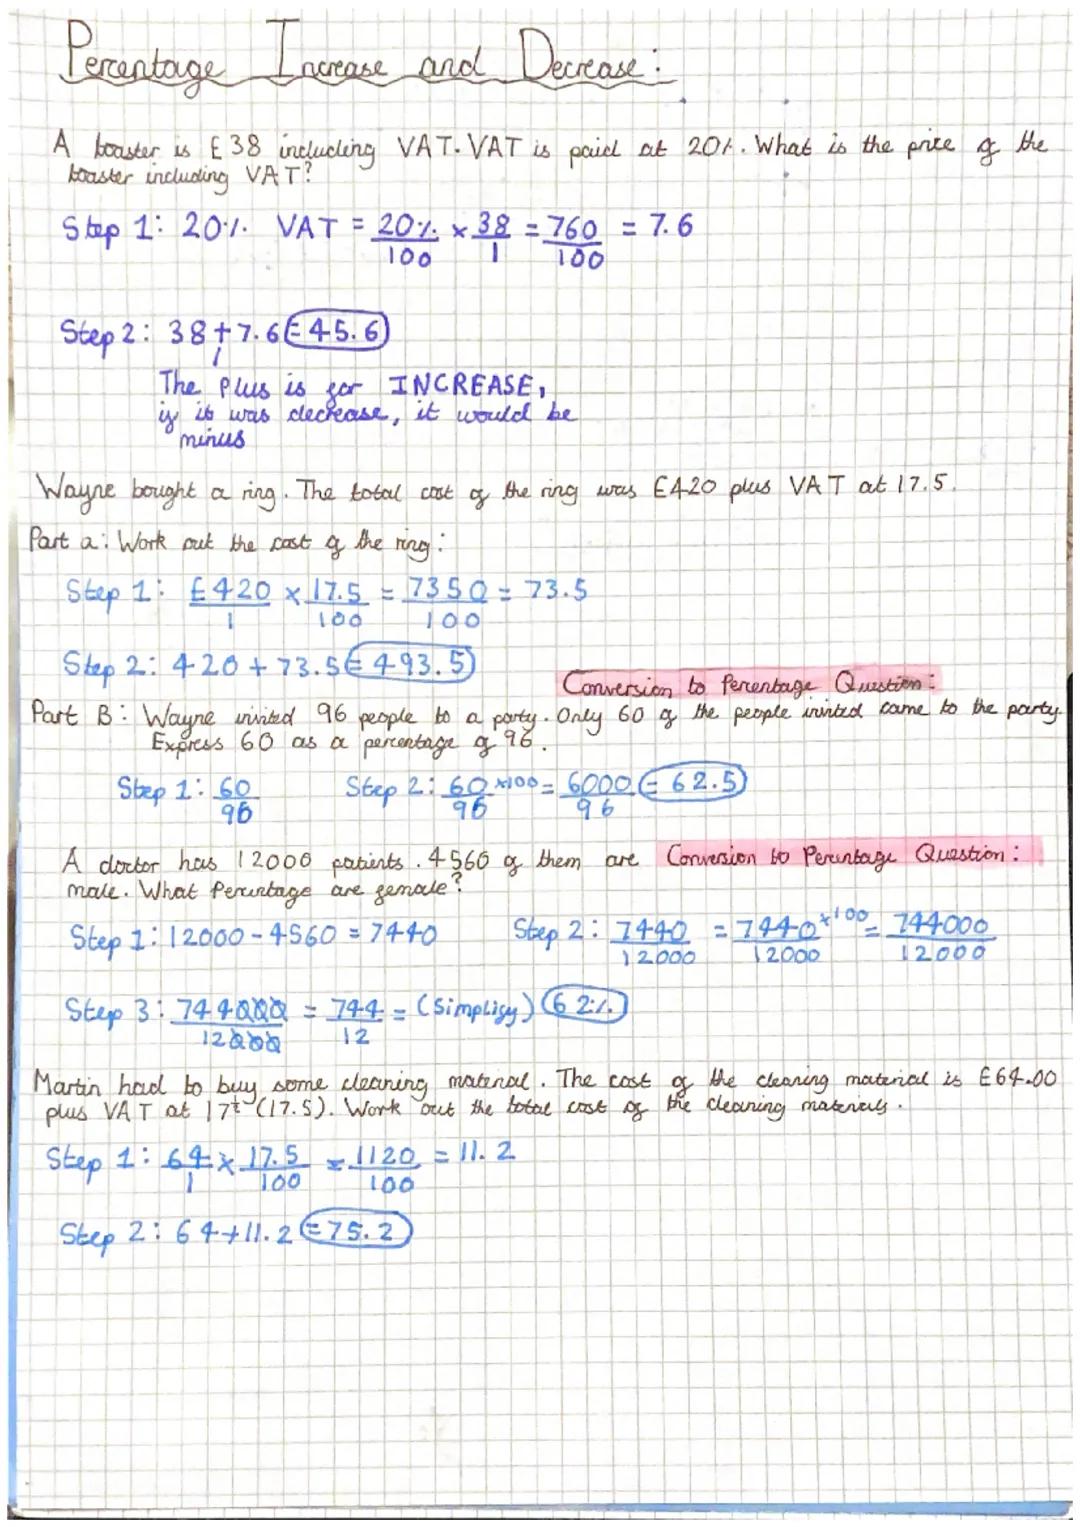 Percentage Increase and Decrease:
A toaster is £38 including VAT. VAT is paid at 20%. What is the price of the
toaster including VAT?
Step 1: 20% VAT = 20%/100 × 38/1 = 760/100 = 7.6
Step 2: 38 + 7.6 = 45.6
The plus is for INCREASE,
if it was decrease, it would be
minus
Wayne bought a ring. The total cost of the ring was £420 plus VAT at 17.5.
Part a: Work out the cost of the ring:
Step 1: £420/1 × 17.5/100 = 7350/100 = 73.5
Step 2: 420 + 73.5 = 493.5
Conversion to Percentage Question:
Part B: Wayne invited 96 people to a party. Only 60 of the people invited came to the party.
Express 60 as a percentage of 96.
Step 1: 60/96 Step 2: 60/96 ×100 = 6000/96 = 62.5
A doctor has 12000 patients. 4560 of them are Conversion to Percentage Question:
male. What Percentage are female?
Step 1: 12000 - 4560 = 7440 Step 2: 7440/12000 = 7440/12000 ×100 = 744000/12000
Step 3: 744000/12000 = 744/12 = (Simplify) 62%
Martin had to buy some cleaning material. The cost of the cleaning material is £64.00
plus VAT at 17½ (17.5). Work out the total cost of the cleaning materials.
Step 1: 64/1 × 17.5/100 = 1120/100 = 11.2
Step 2: 64 + 11.2 = 75.2